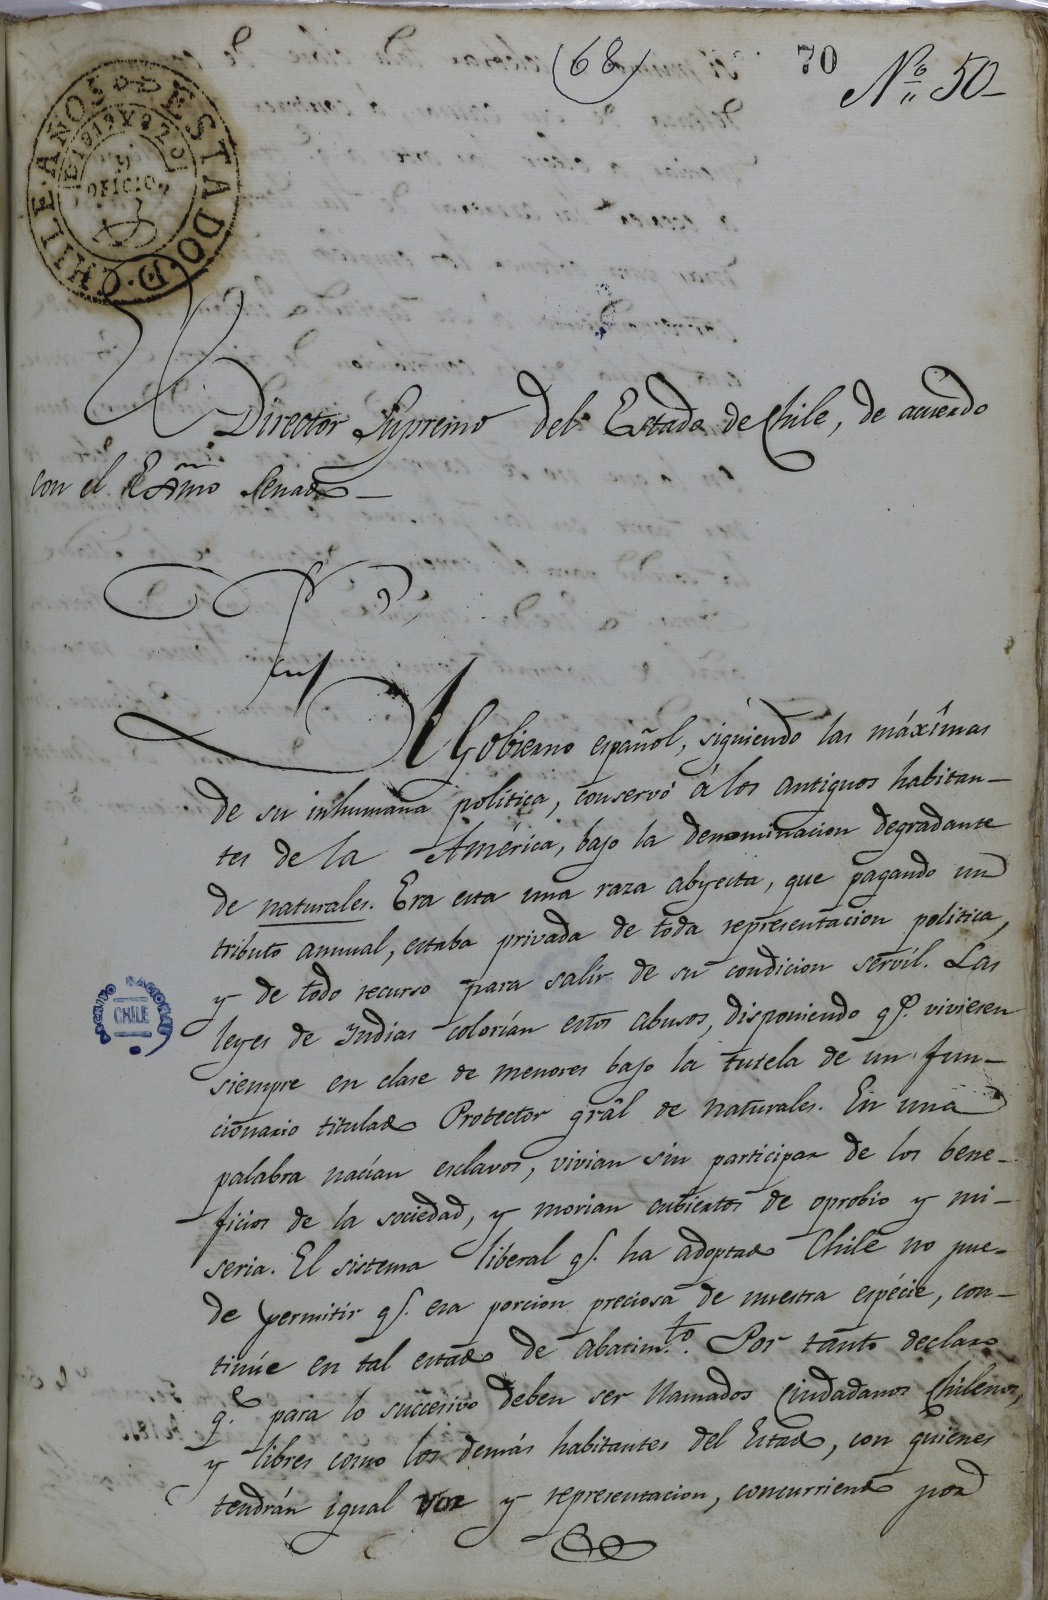 (68) 70 Nº 50
ESTADO D. CHILE AÑOS
D 1819 Y 820
OFICIO
Director Supremo del Estado de Chile, de acuerdo
con el Exmo Senado
El Gobierno español, siguiendo las máximas
de su inhumana política, conservó á los antiguos habitan-
tes de la América, bajo la denominacion degradante
de naturales. Era esta una raza abyecta, que pagando un
tributo annual, estaba privada de toda representacion politica,
y de todo recurso para salir de su condicion servíl. Las
leyes de Indias colorían estos abusos, disponiendo qe. viviesen
siempre en clase de menores bajo la tutela de un fun-
cionario titulado Protector grâl de naturales. En una
palabra nacían esclavos, vivian sin participar de los bene-
ficios de la sociedad, y morian cubiertos de oprobio y mi-
seria. El sistema liberal qe. ha adoptado Chile no pue-
de permitir qe. esa porcion preciosa de nuestra espécie, con-
tinúe en tal estado de abatimto. Por tanto declaro
qe. para lo succesivo deben ser llamados Ciudadanos Chilenos,
y libres como los demás habitantes del Estado, con quienes
tendrán igual voz y representacion, concurriendo por
ARCHIVO NACIONAL
CHILE